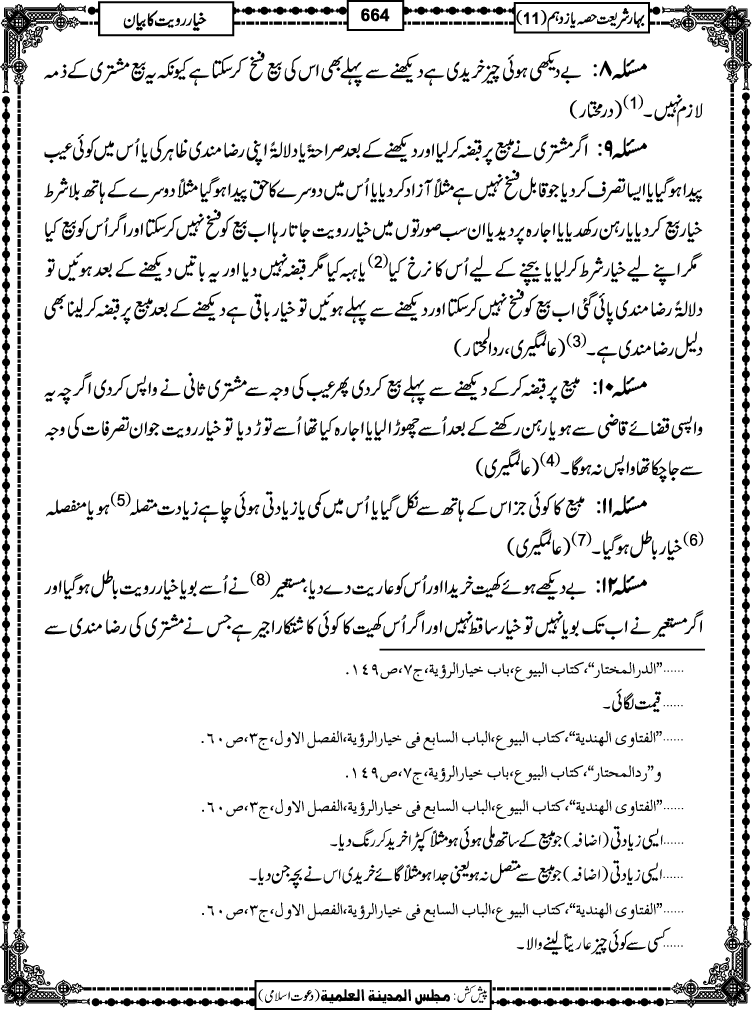 بہار شریعت حصہ یازدہم (11)
664
خیار رویت کا بیان
مسئلہ ۸: بے دیکھی ہوئی چیز خریدی ہے دیکھنے سے پہلے بھی اس کی بیع فسخ کرسکتا ہے کیونکہ یہ بیع مشتری کے ذمہ
لازم نہیں۔(1) (درمختار)
مسئلہ ۹: اگر مشتری نے مبیع پر قبضہ کرلیا اور دیکھنے کے بعد صراحۃً یا دلالۃً اپنی رضا مندی ظاہر کی یا اُس میں کوئی عیب
پیدا ہوگیا یا ایسا تصرف کردیا جو قابل فسخ نہیں ہے مثلاً آزاد کردیا یا اُس میں دوسرے کا حق پیدا ہوگیا مثلاً دوسرے کے ہاتھ بلا شرط
خیار بیع کردیا یا رہن رکھدیا یا اجارہ پر دیدیا ان سب صورتوں میں خیار رویت جاتا رہا اب بیع کو فسخ نہیں کرسکتا اور اگر اُس کو بیع کیا
مگر اپنے لیے خیار شرط کرلیا یا بیچنے کے لیے اُس کا نرخ کیا(2) یا ہبہ کیا مگر قبضہ نہیں دیا اور یہ باتیں دیکھنے کے بعد ہوئیں تو
دلالۃً رضا مندی پائی گئی اب بیع کو فسخ نہیں کرسکتا اور دیکھنے سے پہلے ہوئیں تو خیار باقی ہے دیکھنے کے بعد مبیع پر قبضہ کرلینا بھی
دلیل رضا مندی ہے۔(3) (عالمگیری، ردالمحتار)
مسئلہ ۱۰: مبیع پر قبضہ کرکے دیکھنے سے پہلے بیع کردی پھر عیب کی وجہ سے مشتری ثانی نے واپس کردی اگرچہ یہ
واپسی قضائے قاضی سے ہو یا رہن رکھنے کے بعد اُسے چھوڑا لیا یا اجارہ کیا تھا اُسے توڑ دیا تو خیار رویت جو ان تصرفات کی وجہ
سے جاچکا تھا واپس نہ ہوگا۔(4) (عالمگیری)
مسئلہ ۱۱: مبیع کا کوئی جز اس کے ہاتھ سے نکل گیا یا اُس میں کمی یا زیادتی ہوئی چاہے زیادت متصلہ(5) ہو یا منفصلہ
(6) خیار باطل ہوگیا۔(7) (عالمگیری)
مسئلہ ۱۲: بے دیکھے ہوئے کھیت خریدا اور اُس کو عاریت دے دیا، مستعیر(8) نے اُسے بویا خیار رویت باطل ہوگیا اور
اگر مستعیر نے اب تک بویا نہیں تو خیار ساقط نہیں اور اگر اُس کھیت کا کوئی کاشتکار اجیر ہے جس نے مشتری کی رضا مندی سے
......"الدرالمختار"، کتاب البیوع، باب خیارالرؤیة، ج۷، ص۱٤۹.
...... قیمت لگائی۔
......"الفتاوی الهندیة"، کتاب البیوع، الباب السابع فی خیارالرؤیة، الفصل الاول، ج۳، ص٦۰.
و"ردالمحتار"، کتاب البیوع، باب خیارالرؤیة، ج۷، ص۱٤۹.
......"الفتاوی الهندیة"، کتاب البیوع، الباب السابع فی خیارالرؤیة، الفصل الاول، ج۳، ص٦۰.
......ایسی زیادتی (اضافہ) جو مبیع کے ساتھ ملی ہوئی ہو مثلاً کپڑا خرید کر رنگ دیا۔
......ایسی زیادتی (اضافہ) جو مبیع سے متصل نہ ہو یعنی جدا ہو مثلاً گائے خریدی اس نے بچہ جن دیا۔
......"الفتاوی الهندیة"، کتاب البیوع، الباب السابع فی خیارالرؤیة، الفصل الاول، ج۳، ص٦۰.
......کسی سے کوئی چیز عاریتاً لینے والا۔
پیش کش: مجلس المدینة العلمیة (دعوت اسلامی)